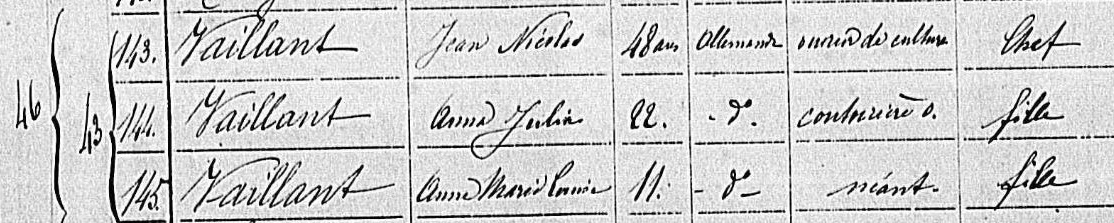 46 43 143. Vaillant Jean Nicolas 48 ans Allemande ouvrier de culture Chef
144. Vaillant Anna Julie 22. - do. couturière o. fille
145. Vaillant Anne Marie Louise 11. - do - néant. fille